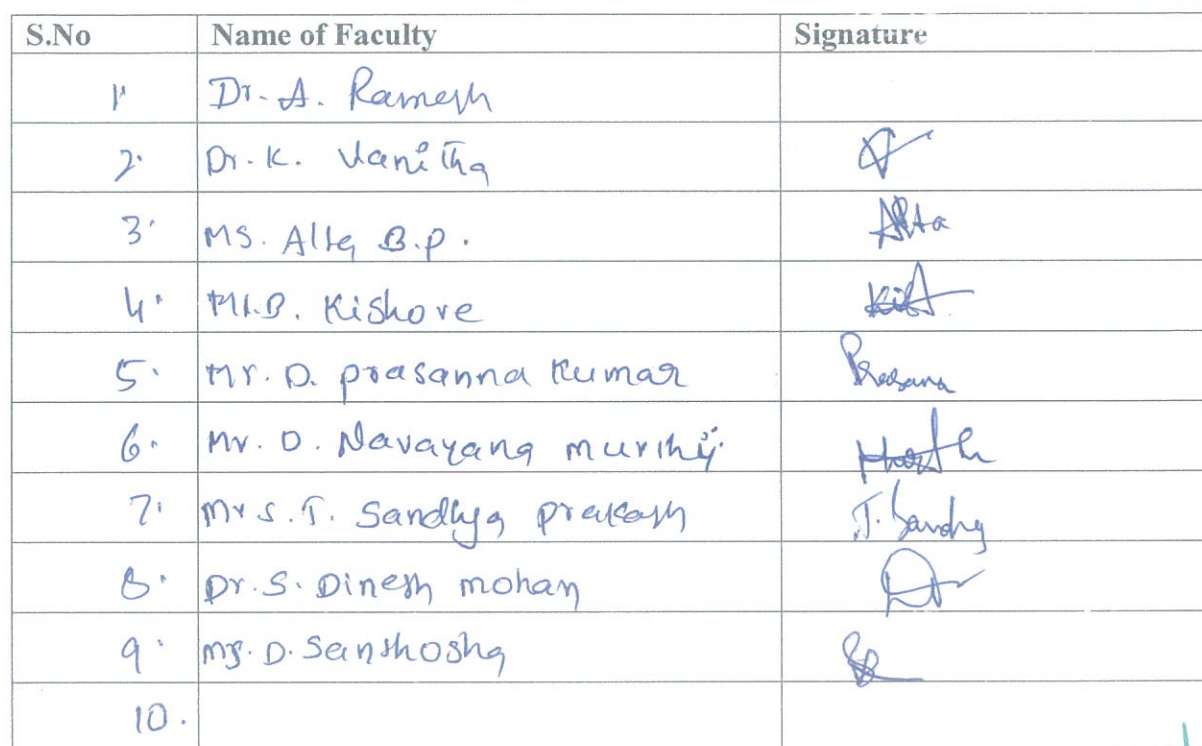 S.No Name of Faculty Signature
1. Dr. A. Ramesh
2. Dr. K. Vanitha
3. Ms. Alta B.P. Alta
4. Mr. B. Kishore
5. Mr. D. prasanna Kumar Prasana
6. Mr. D. Narayana murthy
7. Mrs. T. Sandhya prakash T. Sandhy
8. Dr. S. Dinesh mohan
9. Ms. D. Santhosha
10.